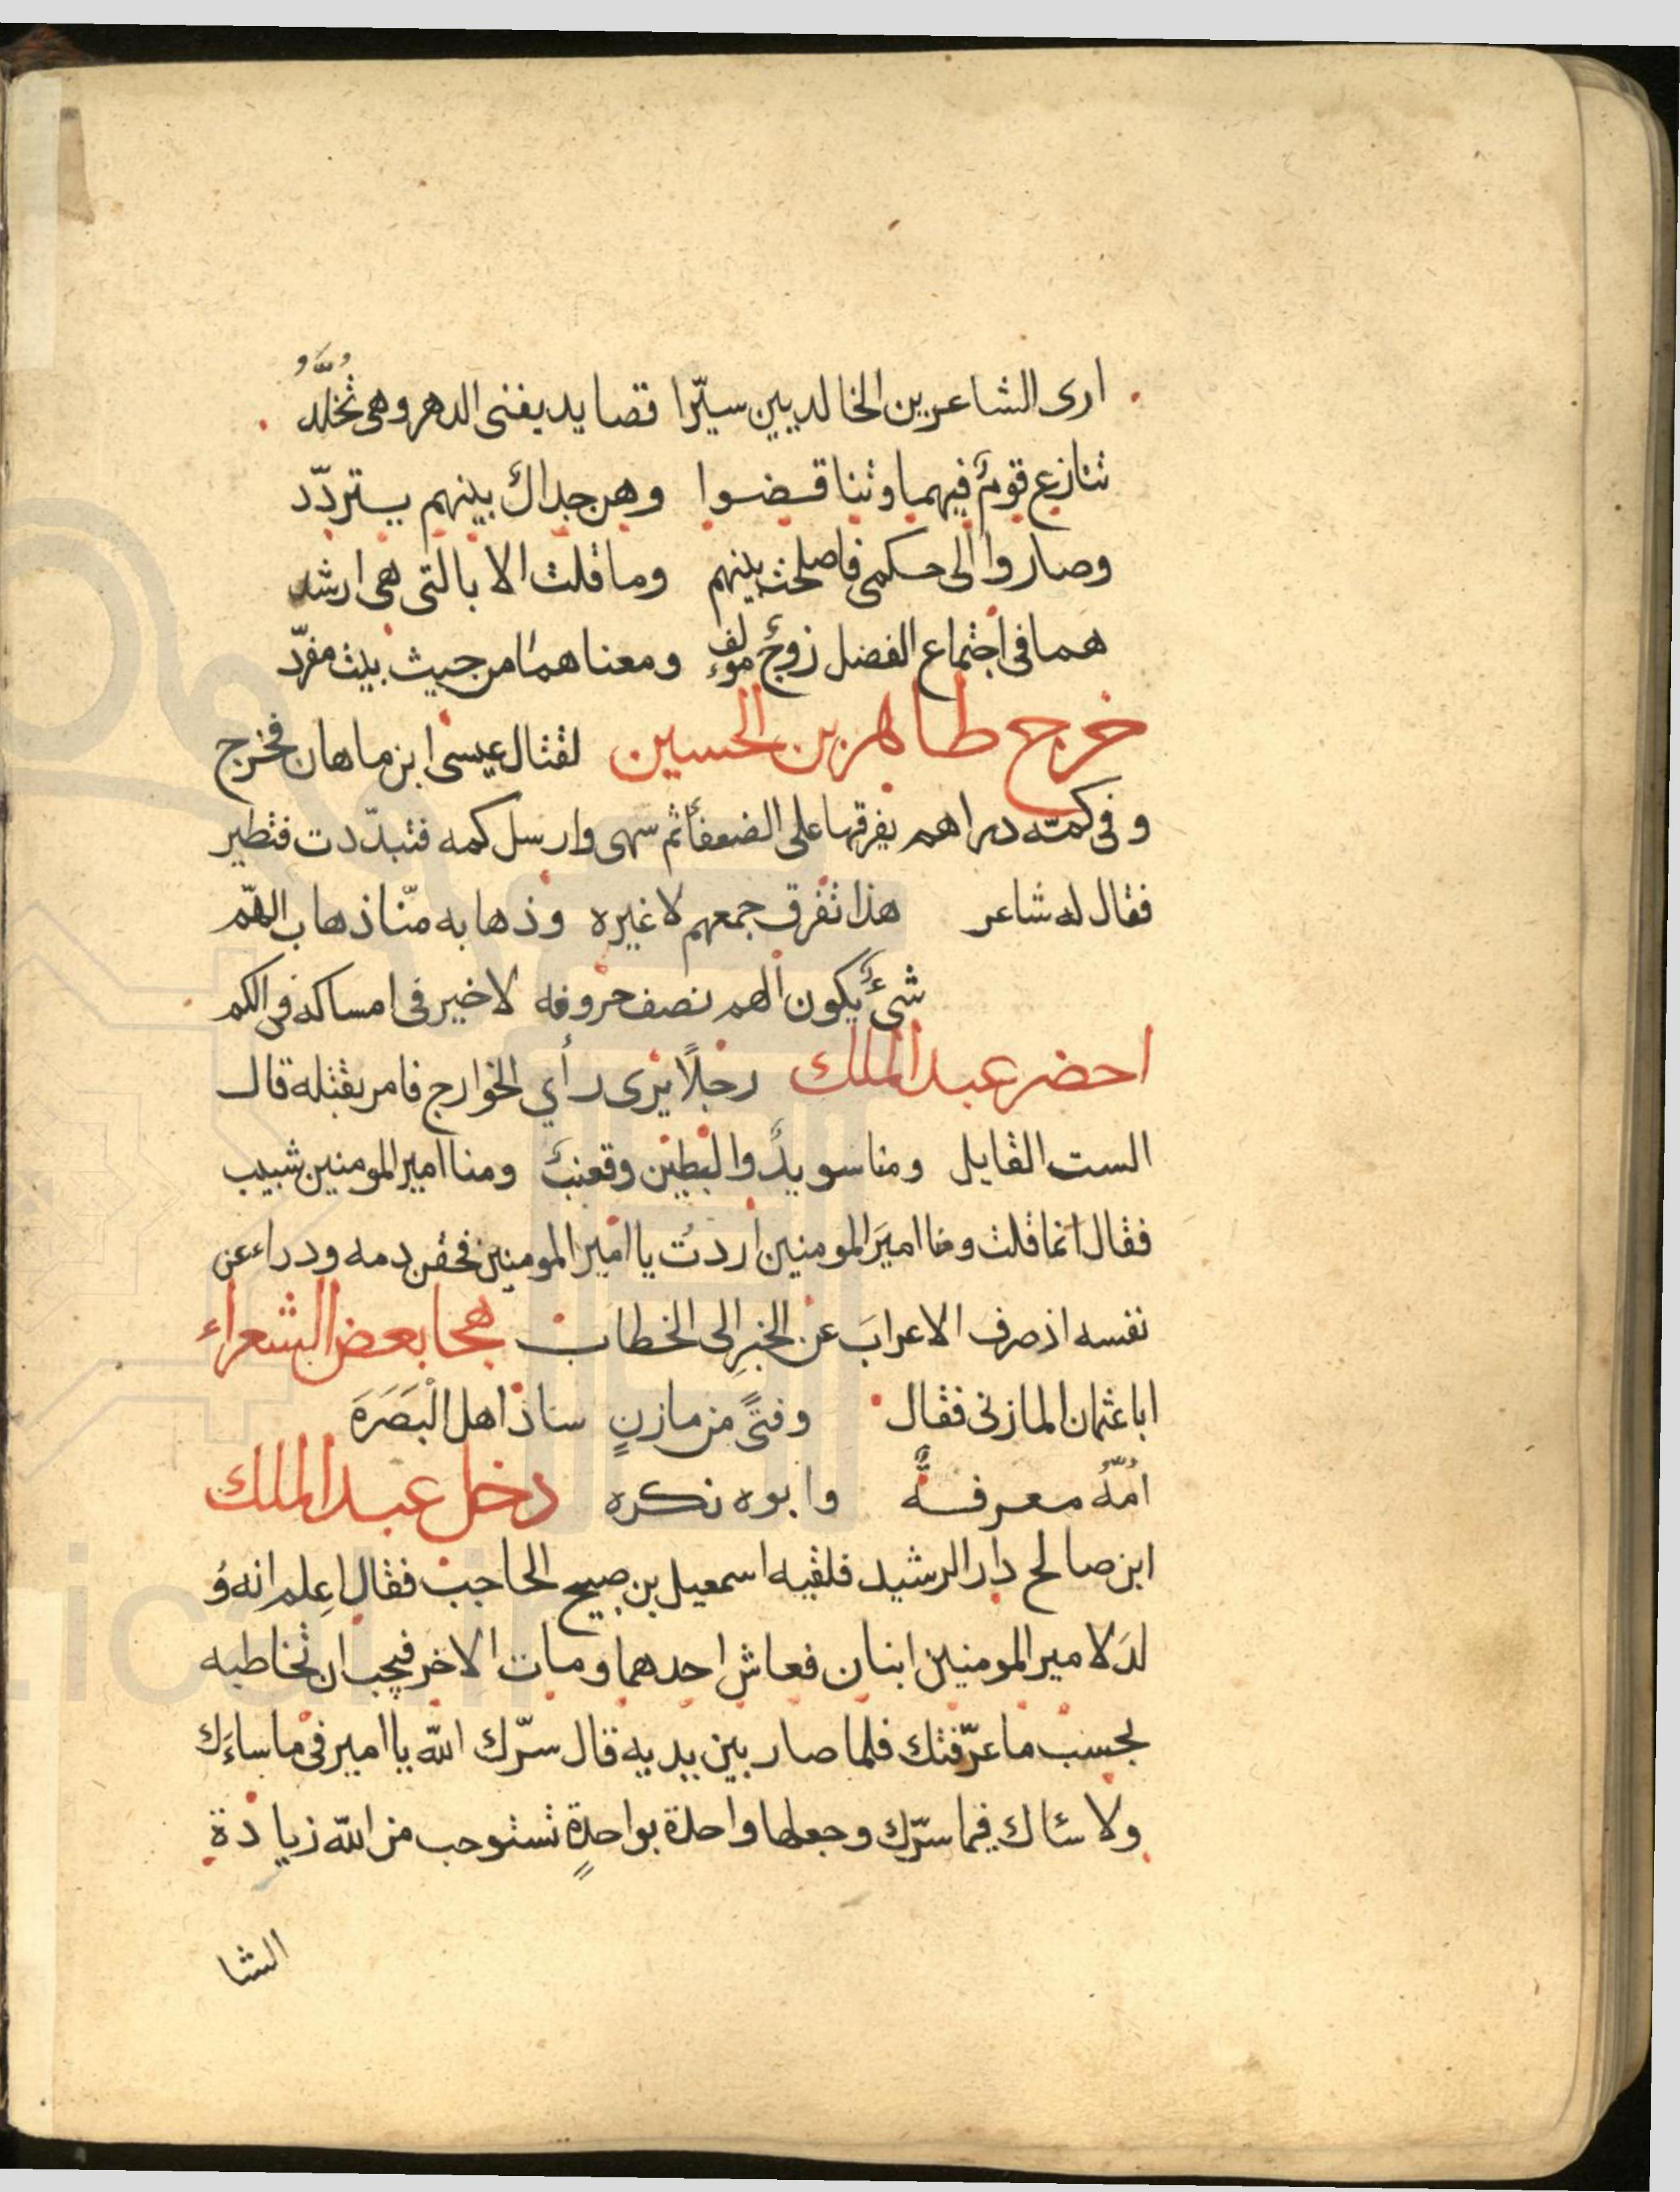 ارى الشاعرين الخالديين سيّرا قصايد يفنى الدهر وهى تُخلَّدُ
تنازع قومٌ فيهما وتناقضوا وهن جداك بينهم يتردّد
وصاروا الى حكمى فاصلحت بينهم وما قلت الا بالتى هى ارشد
هما فى اجتماع الفضل زوجٌ مولف ومعناهما من حيث بيت مفرّد
خرج طاهر بن الحسين لقتال عيسى ابن ماهان فخرج
وفى كمّه دراهم يفرقها على الضعفأ ثم سهى وارسل كمه فتبدّدت فتطير
فقال له شاعر هذا تفرق جمعهم لا غيره وذهابه منّا ذهاب الهّم
شىءٌ يكون الهم نصف حروفه لا خير فى امساكه فى الكم
احضر عبد الملك رجلًا يرى رأي الخوارج فامر بقتله قال
الست القايل ومنا سويدٌ والبطين وقعنب ومنا امير المومنين شبيب
فقال انما قلت ومنا اميرَ المومنين اردتُ يا امير المومنين فحقن دمه ودراء عن
نفسه اذ صرف الاعرابَ عن الخبرِ الى الخطاب هجا بعض الشعراء
ابا عثمان المازنى فقال وفتىً من مازنٍ ساذ اهل الْبَصَرَة
امّهُ معرفةٌ وابوه نكره دخل عبد الملك
ابن صالح دار الرشيد فلقيه اسمعيل بن صبيح الحاجب فقال اعلم انه وُ
لدَ لامير المومنين ابنان فعاش احدهما ومات الاخر فيجب ان تخاطبه
بحسب ما عرّفتك فلما صار بين يديه قال سرّك الله يا امير فى ما ساءَك
ولا سأك فيما سرّك وجعلها واحدة بواحدةٍ تستوجب من الله زيادة
الشا